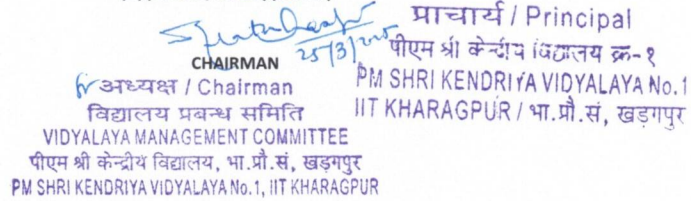 25/3/2025
CHAIRMAN
अध्यक्ष / Chairman
विद्यालय प्रबन्ध समिति
VIDYALAYA MANAGEMENT COMMITTEE
पीएम श्री केन्द्रीय विद्यालय, भा.प्रौ.सं, खड़गपुर
PM SHRI KENDRIYA VIDYALAYA No.1, IIT KHARAGPUR
प्राचार्य / Principal
पीएम श्री केन्द्रीय विद्यालय क्र-१
PM SHRI KENDRIYA VIDYALAYA No.1
IIT KHARAGPUR / भा.प्रौ.सं, खड़गपुर